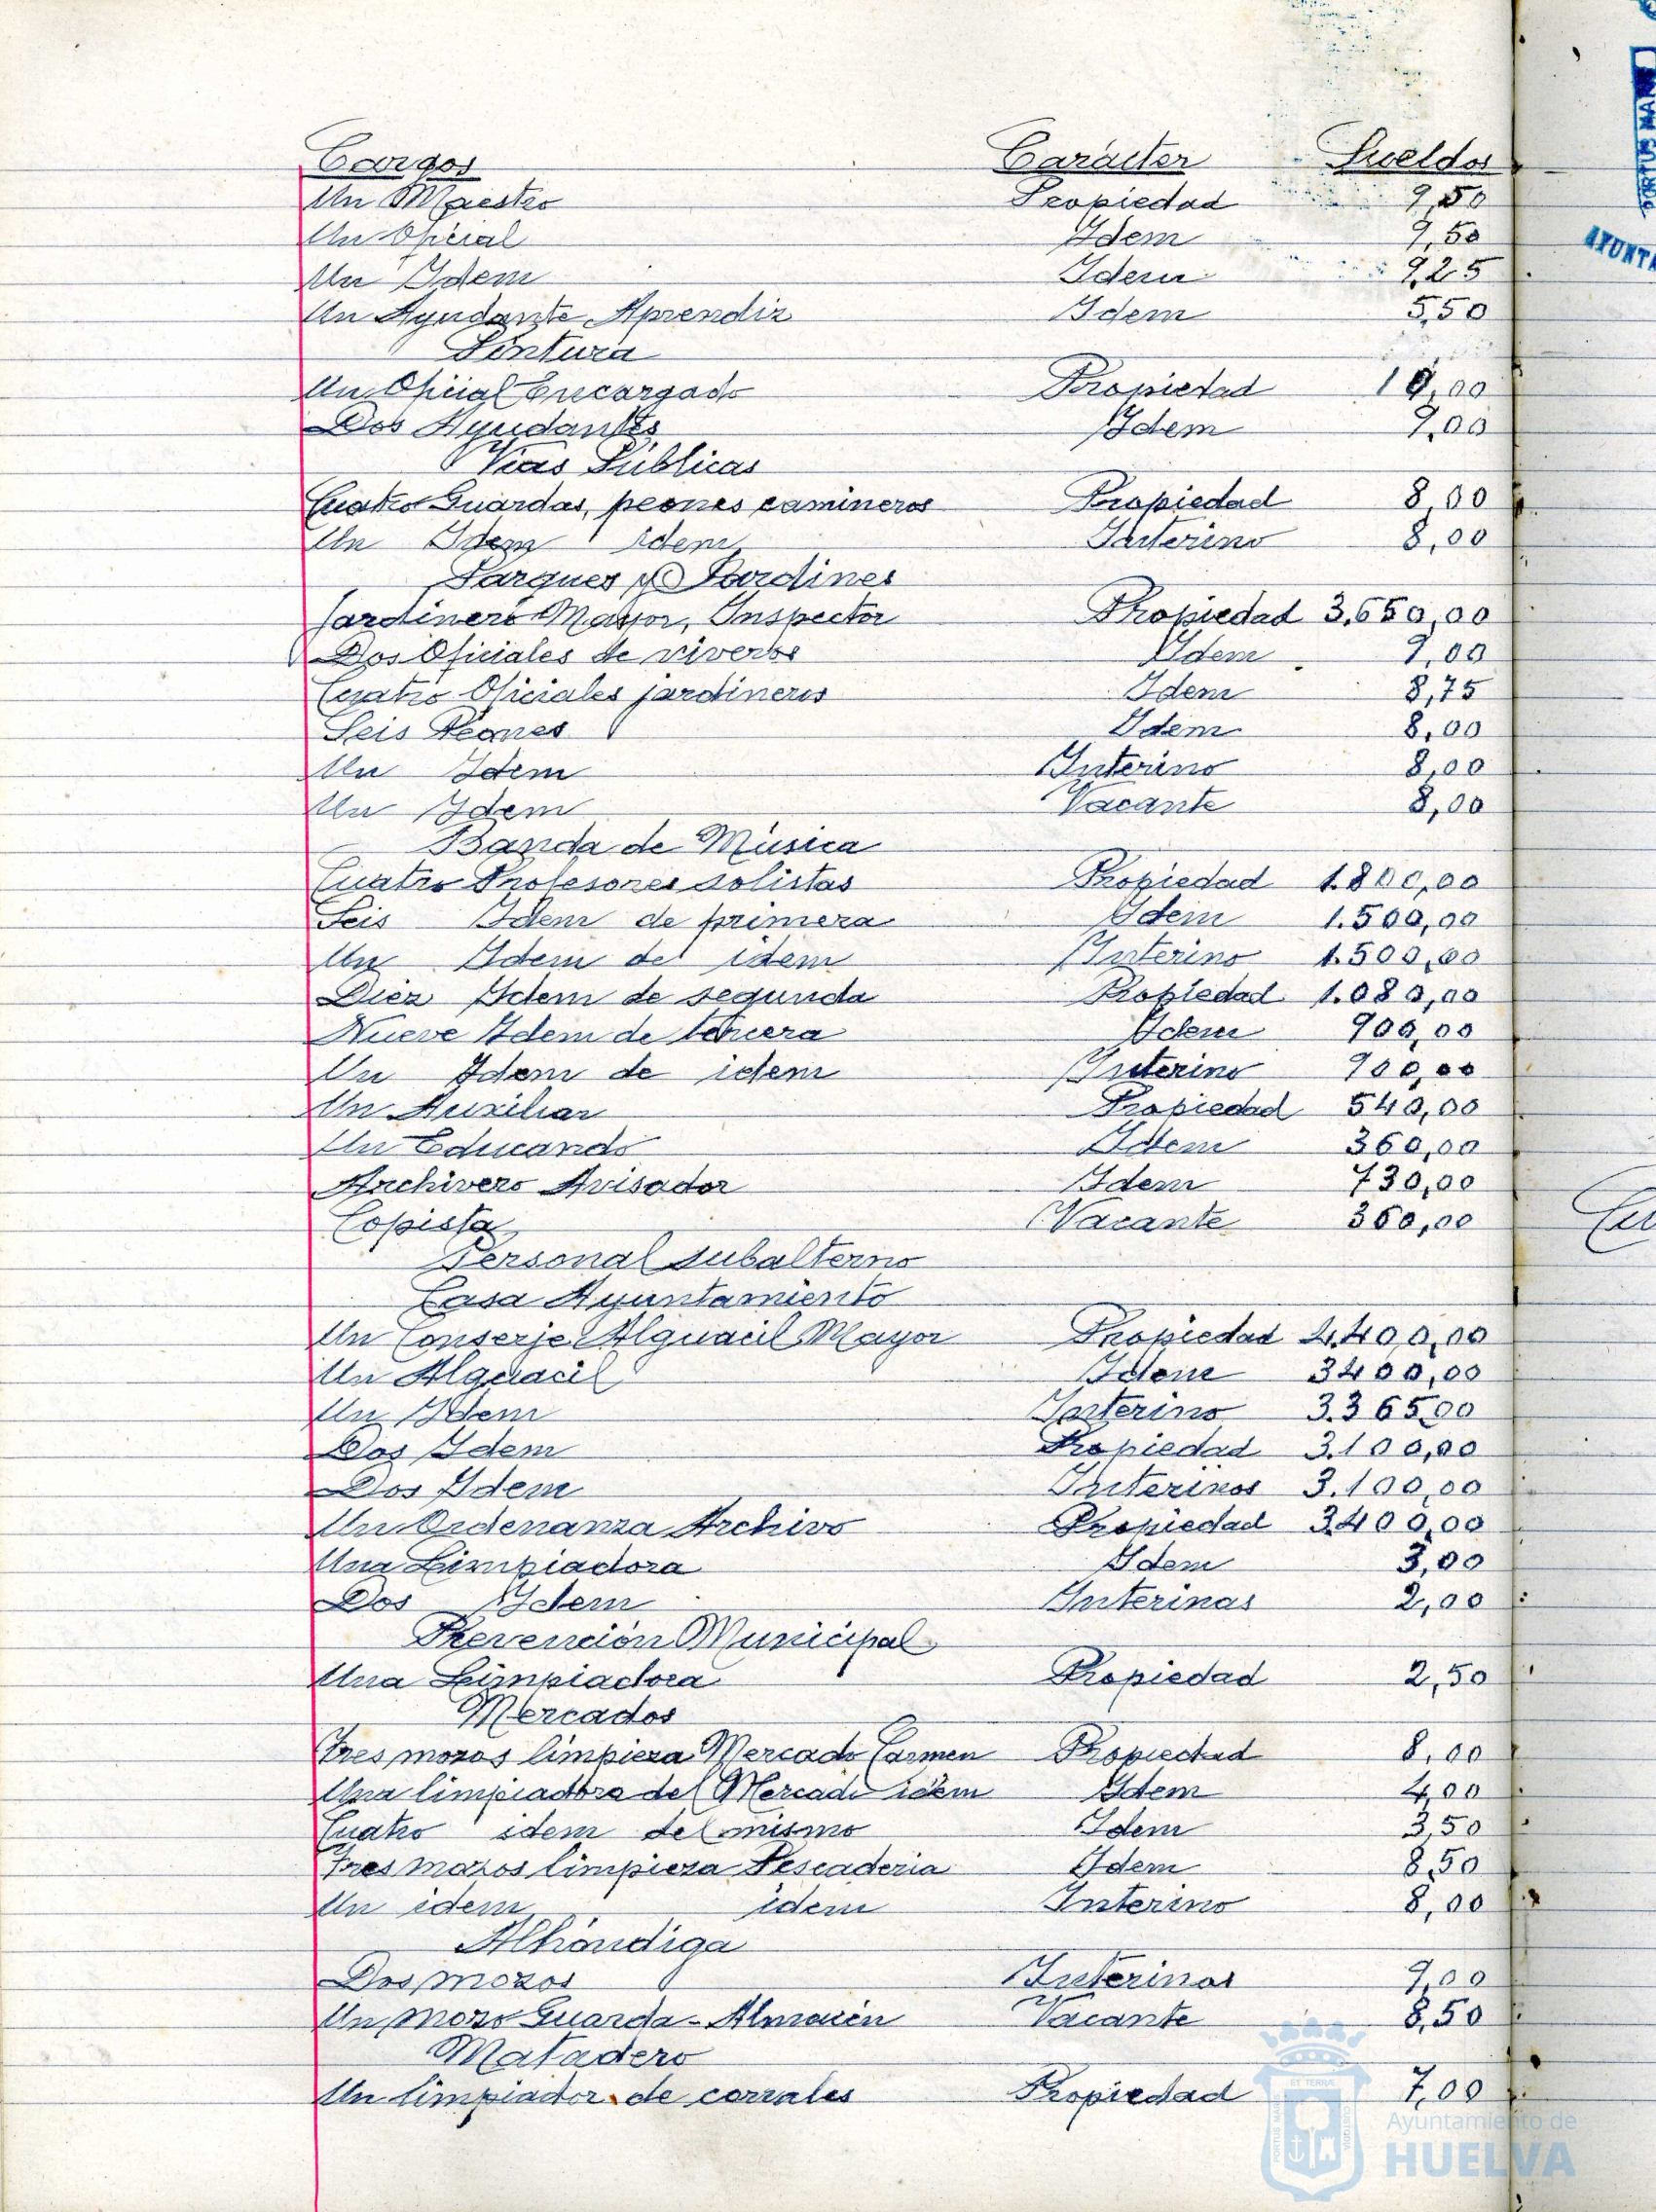 Cargos Carácter Sueldos
Un Maestro Propiedad 9,50
Un Oficial Idem 9,50
Un Idem Idem 9,25
Un Ayudante Aprendiz Idem 5,50
Pintura
Un Oficial Encargado Propiedad 10,00
Dos Ayudantes Idem 9,00
Vías Públicas
Cuatro Guardas, peones camineros Propiedad 8,00
Un Idem idem Interino 8,00
Parques y Jardines
Jardinero Mayor, Inspector Propiedad 3.650,00
Dos Oficiales de viveros Idem 9,00
Cuatro Oficiales jardineros Idem 8,75
Seis Peones Idem 8,00
Un Idem Interino 8,00
Un Idem Vacante 8,00
Banda de Música
Cuatro Profesores solistas Propiedad 1.800,00
Seis Idem de primera Idem 1.500,00
Un Idem de idem Interino 1.500,00
Diez Idem de segunda Propiedad 1.080,00
Nueve Idem de tercera Idem 900,00
Un Idem de idem Interino 900,00
Un Auxiliar Propiedad 540,00
Un Educando Idem 360,00
Archivero Avisador Idem 730,00
Copista Vacante 360,00
Personal subalterno
Casa Ayuntamiento
Un Conserje Alguacil Mayor Propiedad 4.400,00
Un Alguacil Idem 3400,00
Un Idem Interino 3.365,00
Dos Idem Propiedad 3.100,00
Dos Idem Interinos 3.100,00
Un Ordenanza Archivo Propiedad 3.400,00
Una Limpiadora Idem 3,00
Dos Idem Interinas 2,00
Prevención Municipal
Una Limpiadora Propiedad 2,50
Mercados
Tres mozos limpieza Mercado Carmen Propiedad 8,00
Una limpiadora del Mercado idem Idem 4,00
Cuatro idem del mismo Idem 3,50
Tres mozos limpieza Pescaderia Idem 8,50
Un idem idem Interino 8,00
Alhóndiga
Dos mozos Interinos 9,00
Un mozo Guarda-Almacén Vacante 8,50
Matadero
Un limpiador de corrales Propiedad 7,00
Ayuntamiento de
HUELVA
PORTUS MARIS
AYUNTA